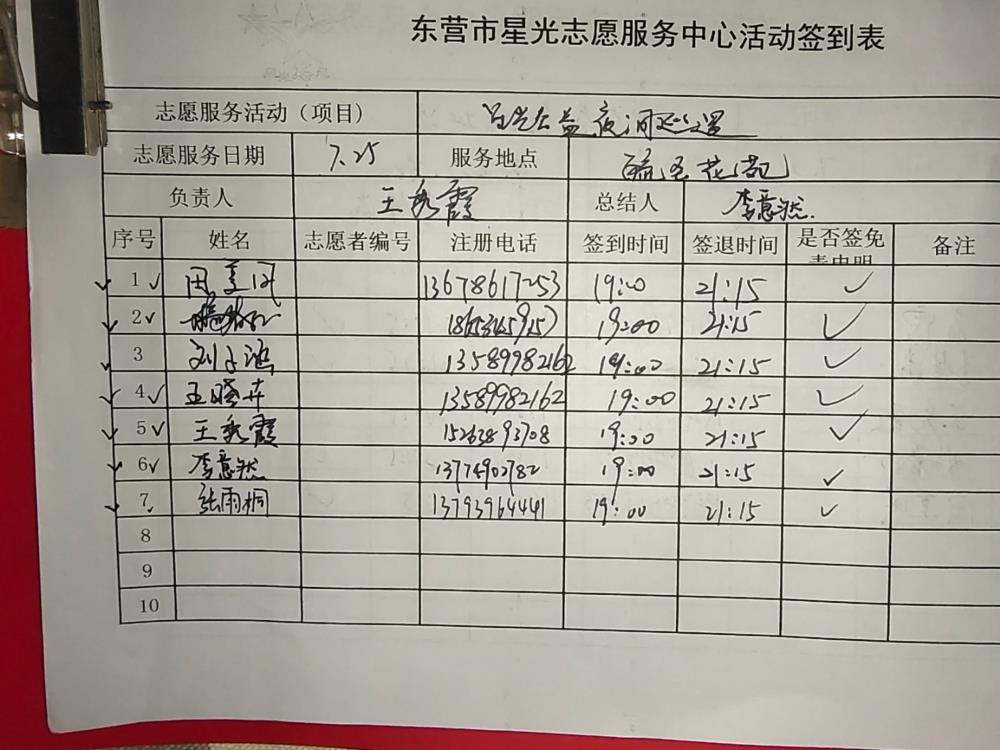 东营市星光志愿服务中心活动签到表
志愿服务活动（项目） 星光公益夜间巡逻
志愿服务日期 7.25 服务地点 花苑
负责人 王秀霞 总结人 李意然.
序号 姓名 志愿者编号 注册电话 签到时间 签退时间 是否签免责声明 备注
1 ✓ 13678617253 19:00 21:15 ✓
2 ✓ 19:00 21:15 ✓
3 刘子涵 13589982162 19:00 21:15 ✓
4 ✓ 王晓卉 13589982162 19:00 21:15 ✓
5 ✓ 王秀霞 15263893708 19:00 21:15 ✓
6 ✓ 李意然 19:00 21:15 ✓
7 张雨桐 13793964441 19:00 21:15 ✓
8
9
10